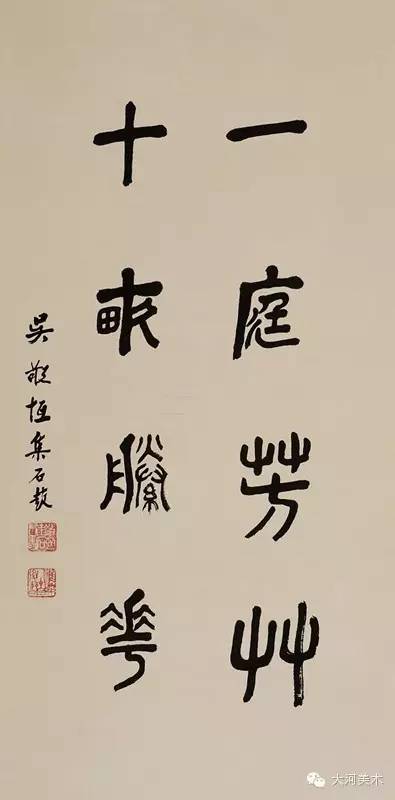 一庭芳艸
十畝縢華
吳敬恆集石鼓
大河美术